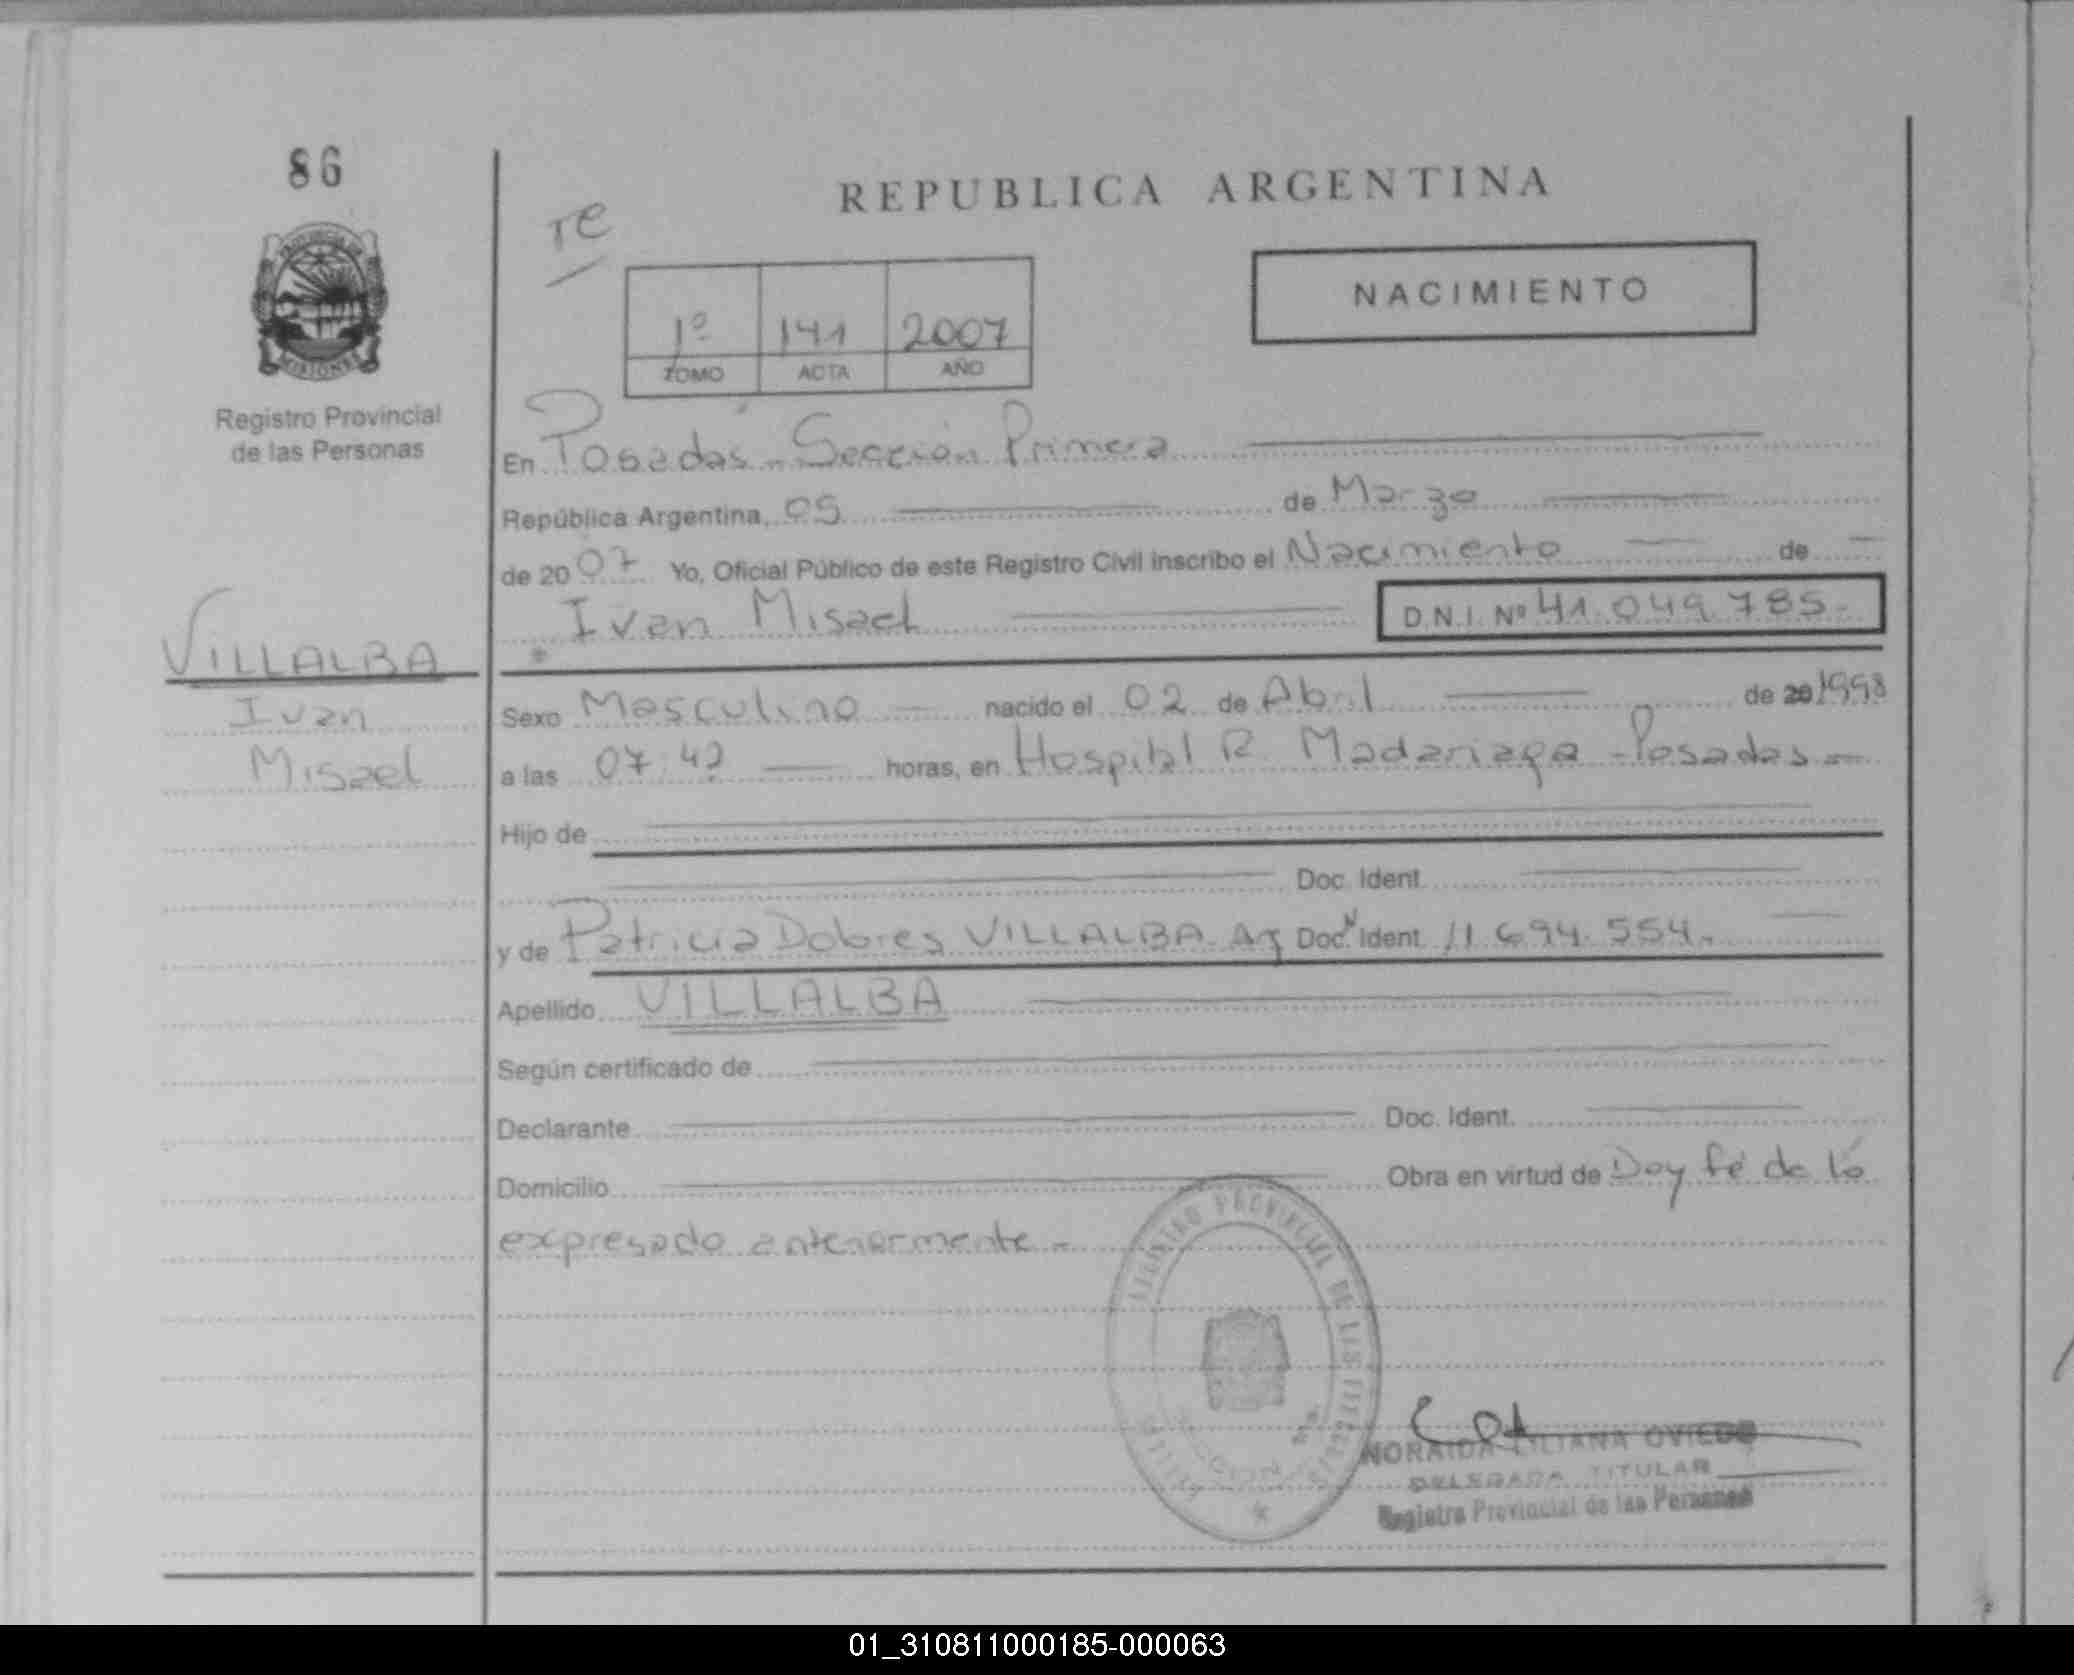 86
REPUBLICA ARGENTINA
Te
NACIMIENTO
1º 141 2007
TOMO ACTA AÑO
PROVINCIA DE
MISIONES
Registro Provincial
de las Personas
En Posadas - Sección Primera
República Argentina, 05 de Marzo
de 2007 Yo, Oficial Público de este Registro Civil inscribo el Nacimiento de
Ivan Misael D.N.I. Nº 41.049.785.-
VILLALBA
Ivan
Misael
Sexo Masculino nacido el 02 de Abril de 20 1998
a las 07:42 horas, en Hospital R. Madariaga - Posadas -
Hijo de
Doc. Ident.
y de Patricia Dolores VILLALBA Arg Doc. N Ident. 11.694.554.-
Apellido VILLALBA
Según certificado de
Declarante Doc. Ident.
Domicilio Obra en virtud de Doy fé de lo
expresado anteriormente -
REGISTRO PROVINCIAL DE LAS PERSONAS
NORAIDA LILIANA OVIEDO
DELEGADA TITULAR
Registro Provincial de las Personas
01_310811000185-000063